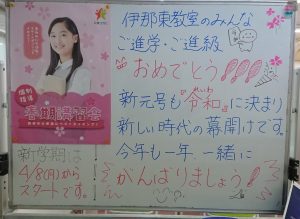 個別指導
春期講習会
新学期は
4/8(月)から
スタートです。
伊那東教室のみんな
ご進学・ご進級
おめでとう!!!
新元号も『令和』に決まり
新しい時代の幕開けです。
今年も一年 一緒に
がんばりましょう!